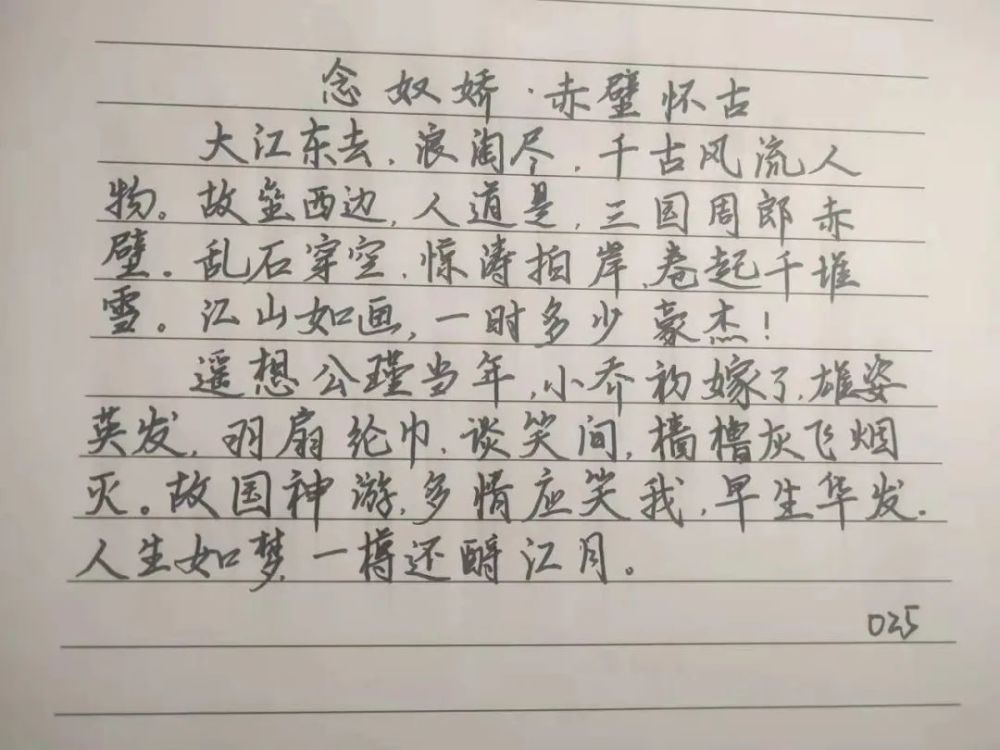 念奴娇·赤壁怀古
大江东去,浪淘尽,千古风流人
物。故垒西边,人道是,三国周郎赤
壁。乱石穿空,惊涛拍岸,卷起千堆
雪。江山如画,一时多少豪杰!
遥想公瑾当年,小乔初嫁了,雄姿
英发,羽扇纶巾,谈笑间,樯橹灰飞烟
灭。故国神游,多情应笑我,早生华发.
人生如梦,一樽还酹江月。
025